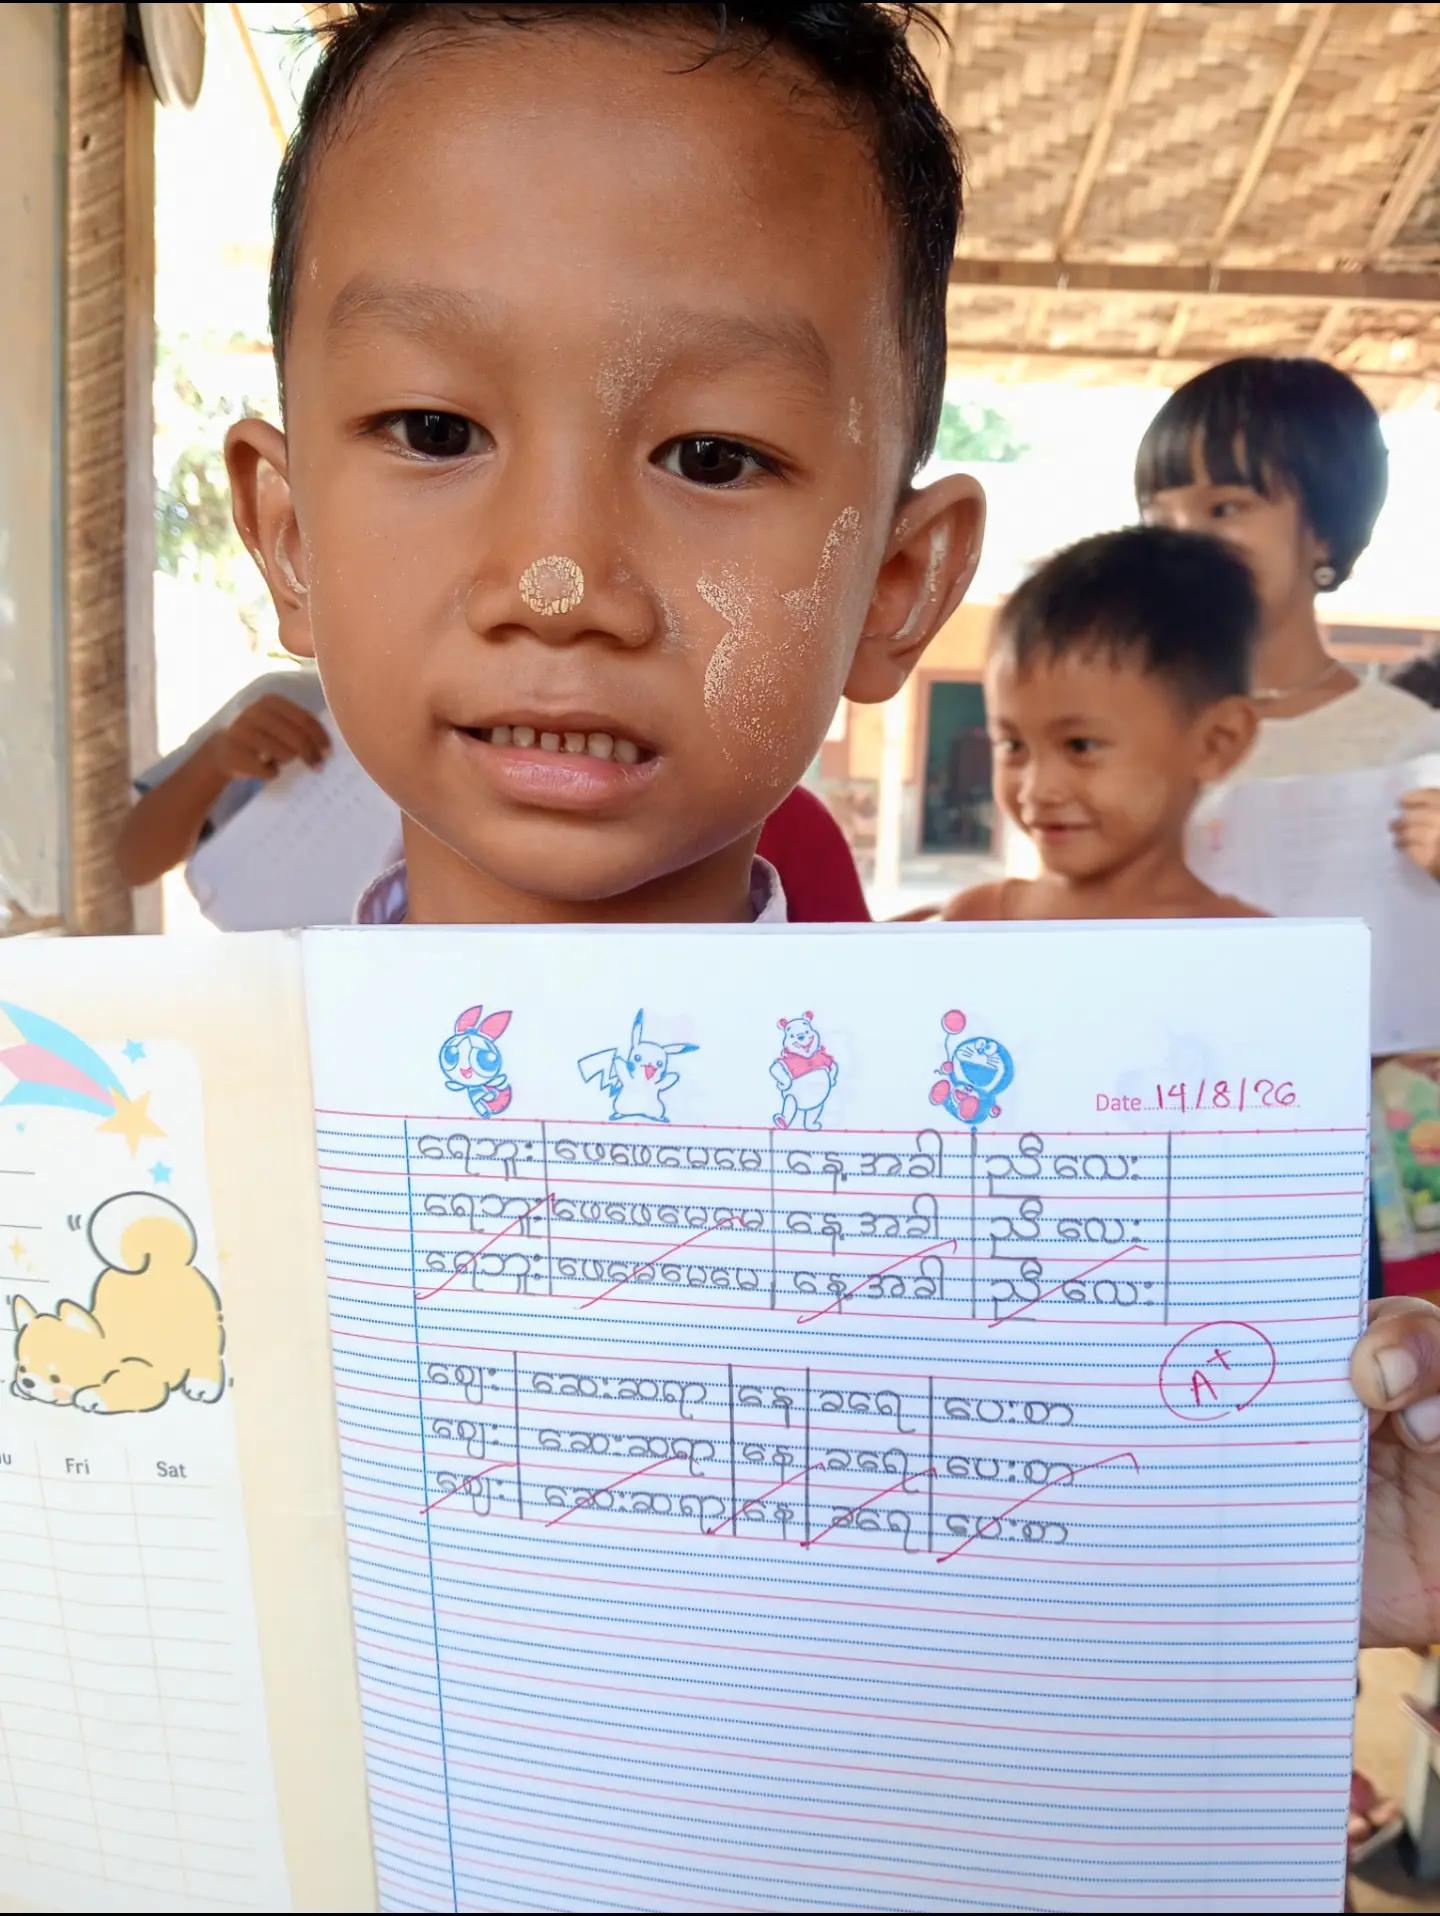 Date 14/8/26
ရေဘူး ဖေဖေမေမေ နေ့အခါ ညီလေး
ရေဘူး ဖေဖေမေမေ နေ့အခါ ညီလေး
ရေဘူး ဖေမေမေမေ နေ့အခါ ညီလေး
A+
ဈေး ဆေးဆရာ နေ ခရေ ပေးတာ
ဈေး ဆေးဆရာ နေ ခရေ ပေးတာ
ဈေး ဆေးဆရာ နေ ခရေ ပေးတာ
Fri Sat